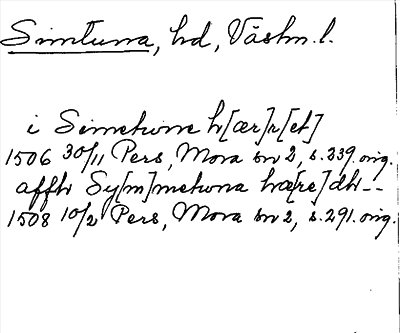 Simtuna, hd, Västm. l.
i Simetwne h[ær]r[et]
1506 30/11 Pers, Mora sn 2, s. 339. orig.
affth Sy[m]metwna hæ[re]dh--
1508 10/2 Pers, Mora sn 2, s. 291. orig.